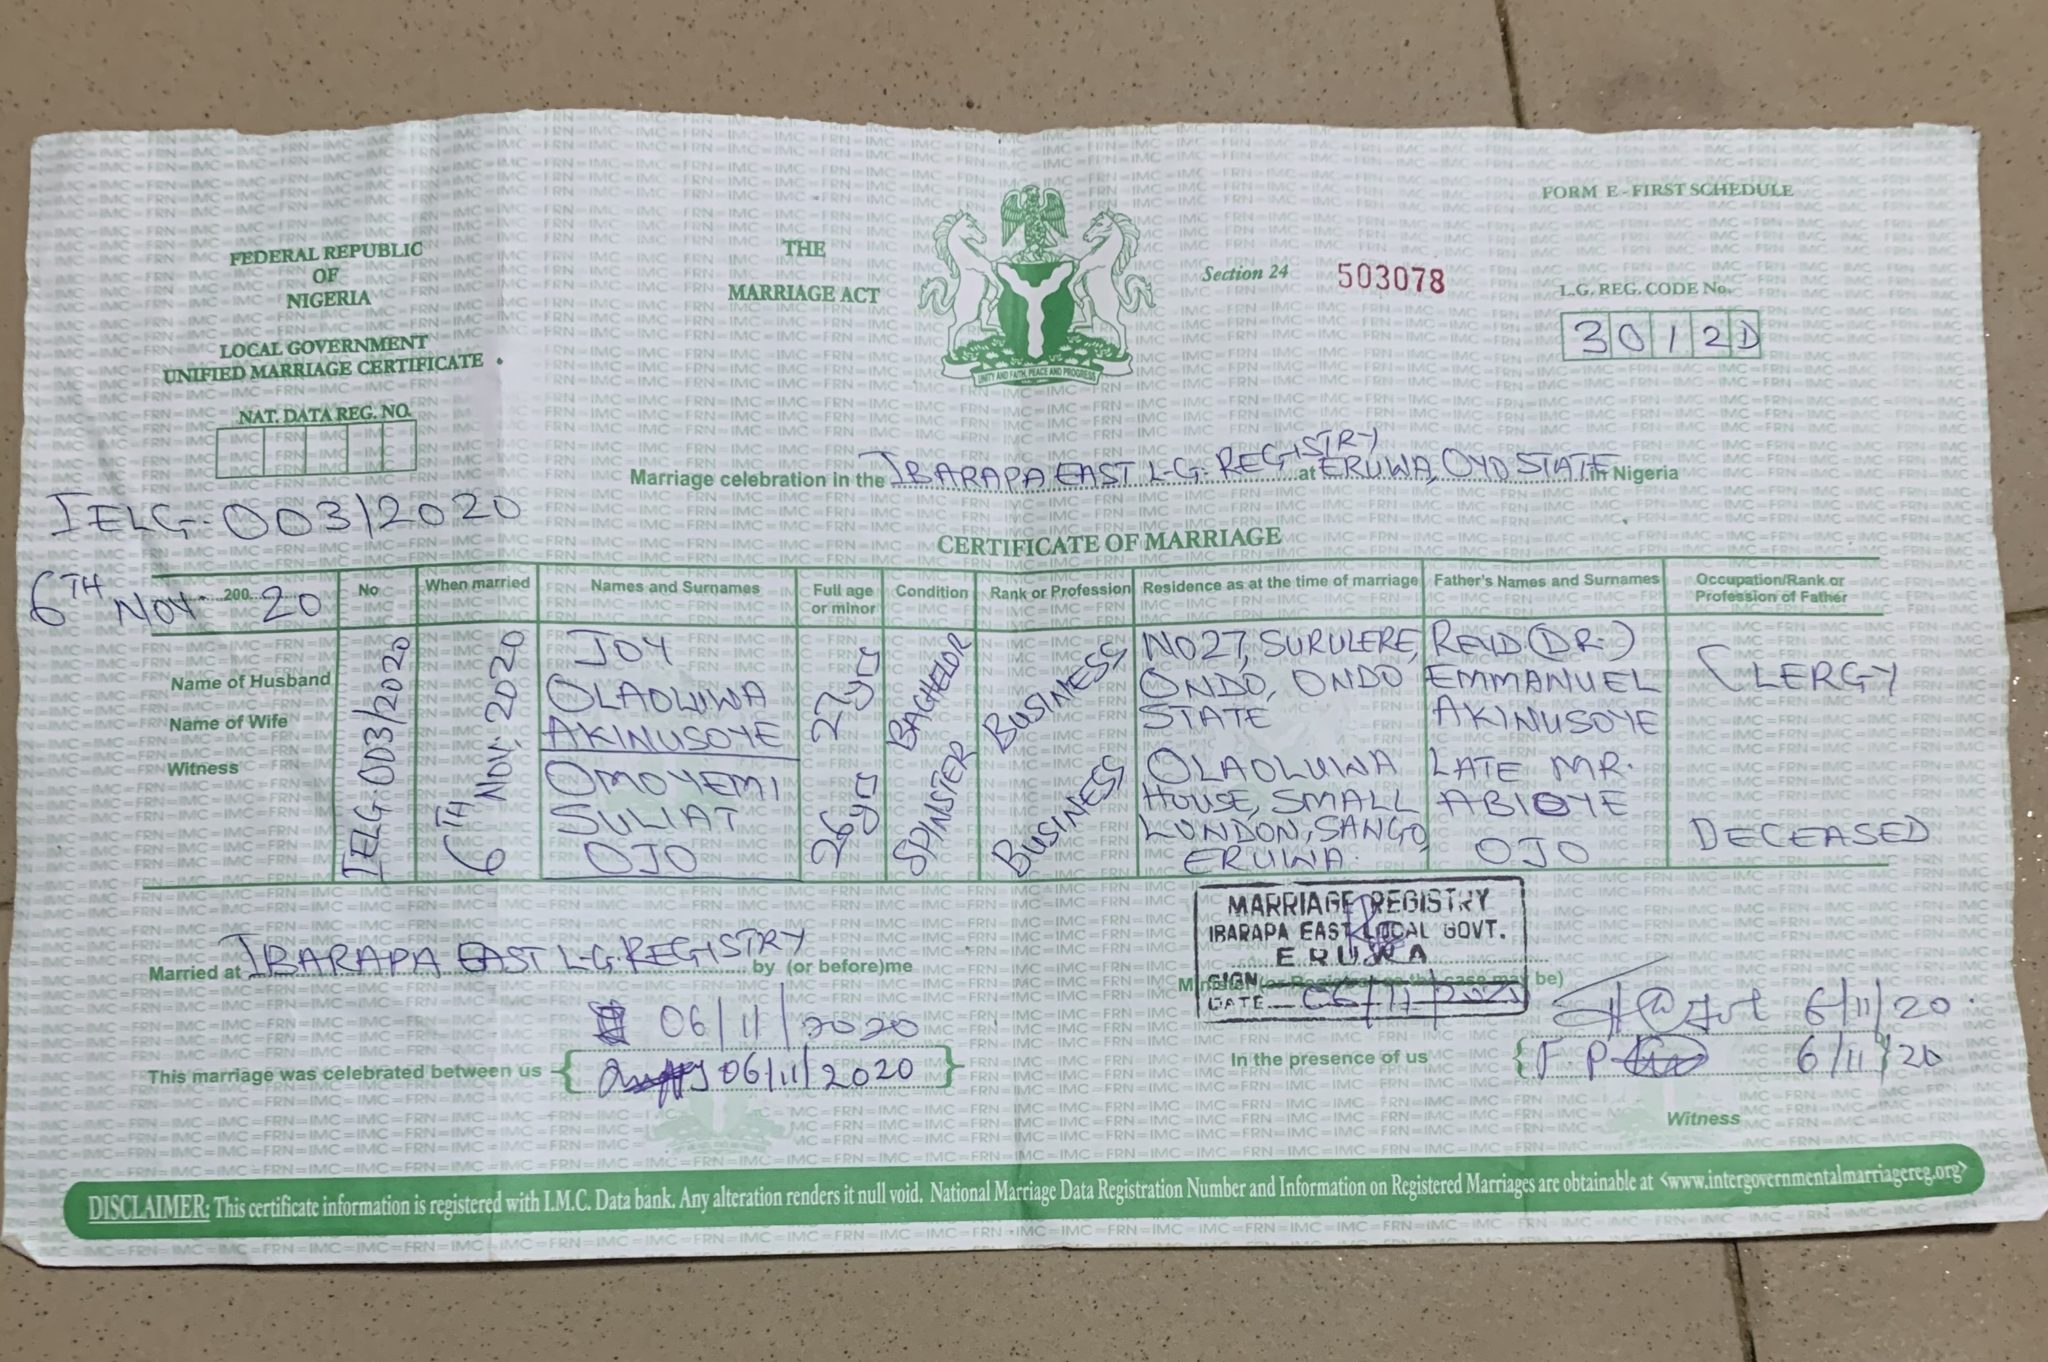 FORM E - FIRST SCHEDULE
FEDERAL REPUBLIC
OF
NIGERIA
LOCAL GOVERNMENT
UNIFIED MARRIAGE CERTIFICATE
NAT. DATA REG. NO.
THE
MARRIAGE ACT
UNITY AND FAITH, PEACE AND PROGRESS
Section 24 503078
L.G. REG. CODE No.
3012D
IELG. 003/2020
Marriage celebration in the IBARAPA EAST L-G. REGISTRY at ERUWA, OYO STATE in Nigeria
CERTIFICATE OF MARRIAGE
6TH NOV. 200 20
No
When married
Names and Surnames
Full age
or minor
Condition
Rank or Profession
Residence as at the time of marriage
Father's Names and Surnames
Occupation/Rank or
Profession of Father
Name of Husband
Name of Wife
Witness
IELG.003/2020
6TH NOV. 2020
JOY
OLAOLUWA
AKINUSOYE
27yrs
BACHELOR
BUSINESS
NO27, SURULERE,
ONDO, ONDO
STATE
REVD (DR.)
EMMANUEL
AKINUSOYE
CLERGY
OMOYEMI
SULIAT
OJO
26yrs
SPINSTER
BUSINESS
OLAOLUWA
HOUSE, SMALL
LONDON, SANGO,
ERUWA.
LATE MR.
ABIOYE
OJO
DECEASED
Married at IBARAPA EAST L-G. REGISTRY by (or before)me
MARRIAGE REGISTRY
IBARAPA EAST LOCAL GOVT.
ERUWA
SIGN
DATE 06/11/2020
Minister (or Registrar as the case may be)
06/11/2020
This marriage was celebrated between us 06/11/2020
In the presence of us
6/11/20
6/11/20
Witness
DISCLAIMER: This certificate information is registered with I.M.C. Data bank. Any alteration renders it null void. National Marriage Data Registration Number and Information on Registered Marriages are obtainable at <www.intergovernmentalmarriagereg.org>